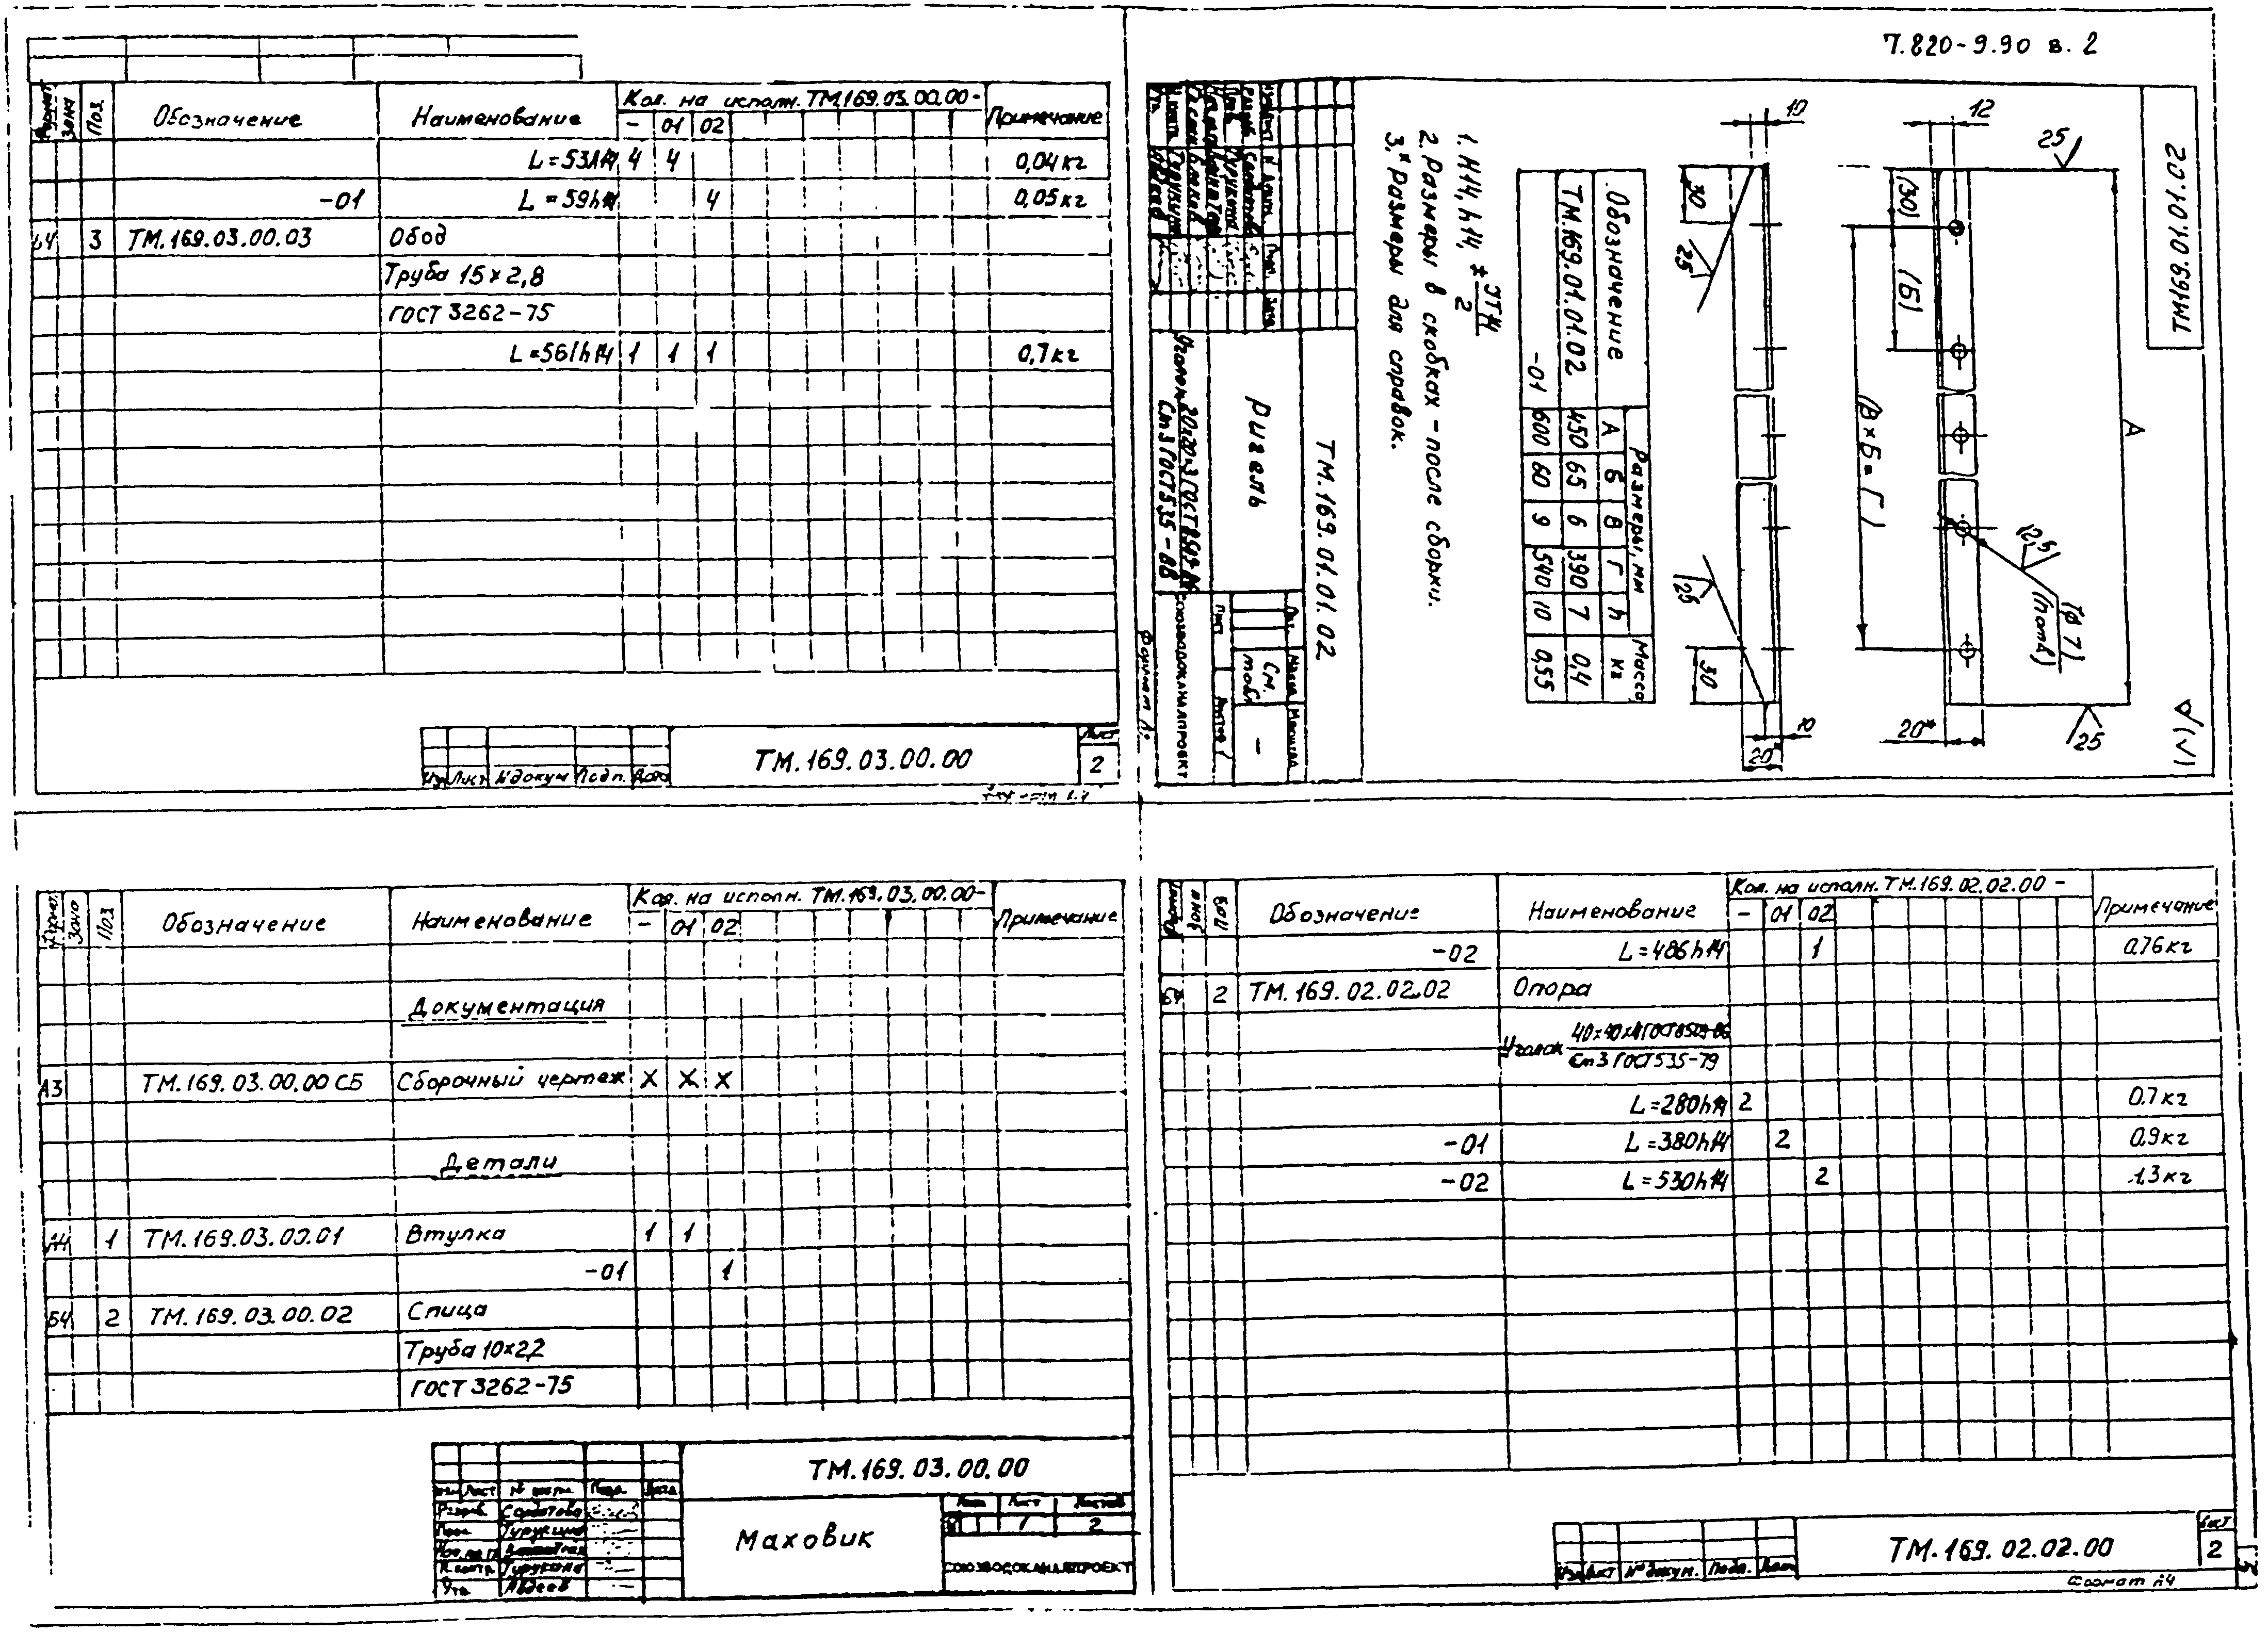 7.820-9.90 в. 2
Формат Зона Поз. Обозначение Наименование Кол. на исполн. ТМ.169.03.00.00- Примечание
- 01 02
L=53h14 4 4 0,04кг
-01 L=59h14 4 0,05кг
Б4 3 ТМ.169.03.00.03 Обод
Труба 15×2,8
ГОСТ 3262-75
L=561h14 1 1 1 0,7кг
ТМ.169.03.00.00
Лист
2
Изм Лист №докум Подп. Дата
ТМ.169.01.01.02
25
12
10
(30)
(Б)
(В×Б=Г)
А
12,5
(φ7)
(h отв)
20*
25
30
25
25
30
10
20
√(√)
Обозначение Размеры, мм Масса кг
А Б В Г h
ТМ.169.01.01.02 450 65 6 390 7 0,4
-01 600 60 9 540 10 0,55
1. H14, h14, ± IT14/2
2. Размеры в скобках - после сборки.
3.* Размеры для справок.
ТМ.169.01.01.02
Ригель
Лит. Масса Масштаб
См. табл. -
Лист Листов 1
Уголок 20×20×3 ГОСТ 8509-86
Ст3 ГОСТ 535-88
СОЮЗВОДОКАНАЛПРОЕКТ
Формат
Формат Зона Поз Обозначение Наименование Кол. на исполн. ТМ.169.03.00.00- Примечание
- 01 02
Документация
А3 ТМ.169.03.00.00 СБ Сборочный чертеж X X X
Детали
А4 1 ТМ.169.03.00.01 Втулка 1 1
-01 1
Б4 2 ТМ.169.03.00.02 Спица
Труба 10×2,2
ГОСТ 3262-75
ТМ.169.03.00.00
Изм Лист № докум. Подп. Дата
Разраб.
Пров. Турукина
Н.контр. Турукина
Утв. Авдеев
Маховик
Лит Лист Листов
1 2
СОЮЗВОДОКАНАЛПРОЕКТ
Формат Зона Поз Обозначение Наименование Кол. на исполн. ТМ.169.02.02.00- Примечание
- 01 02
-02 L=486h14 1 0.76кг
Б4 2 ТМ.169.02.02.02 Опора
Уголок 40×40×4 ГОСТ 8509-86
Ст3 ГОСТ 535-79
L=280h14 2 0.7кг
-01 L=380h14 2 0.9кг
-02 L=530h14 2 1.3кг
ТМ.169.02.02.00
Лист
2
Изм Лист № докум. Подп. Дата
Формат А4